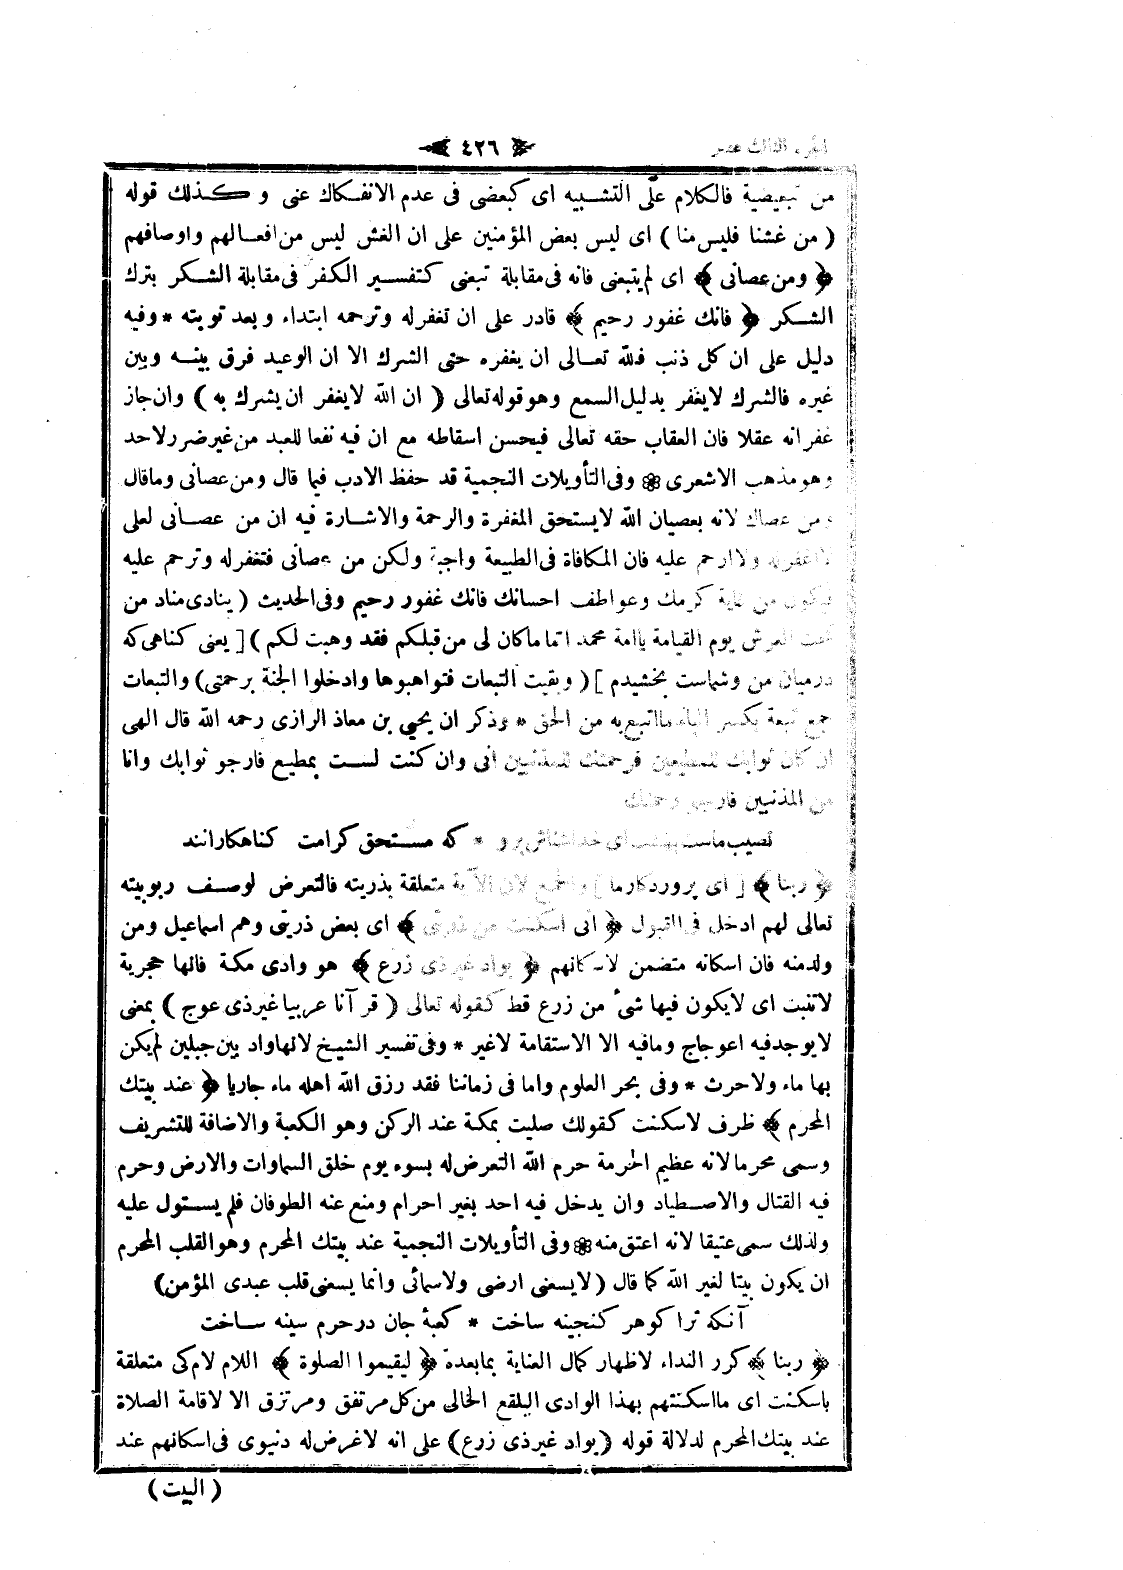 الجزء الثالث عشر
٤٢٦
من تبعيضية فالكلام على التشبيه اى كبعضى فى عدم الانفكاك عنى و كذلك قوله
( من غشنا فليس منا ) اى ليس بعض المؤمنين على ان الغش ليس من افعالهم واوصافهم
﴿ ومن عصانى ﴾ اى لم يتبعنى فانه فى مقابلة تبعنى كتفسير الكفر فى مقابلة الشكر بترك
الشكر ﴿ فانك غفور رحيم ﴾ قادر على ان تغفرله وترحمه ابتداء وبعد توبته * وفيه
دليل على ان كل ذنب فلله تعالى ان يغفره حتى الشرك الا ان الوعيد فرق بينه وبين
غيره فالشرك لايغفر بدليل السمع وهو قوله تعالى ( ان الله لايغفر ان يشرك به ) وان جاز
غفرانه عقلا فان العقاب حقه تعالى فيحسن اسقاطه مع ان فيه نفعا للعبد من غير ضرر لاحد
وهو مذهب الاشعرى * وفى التأويلات النجمية قد حفظ الادب فيما قال ومن عصانى وماقال
ومن عصاك لانه بعصيان الله لايستحق المغفرة والرحمة والاشارة فيه ان من عصانى لعلى
لااغفرله ولاارحم عليه فان المكافاة فى الطبيعة واجبة ولكن من عصانى فتغفرله وترحم عليه
فيكون من غاية كرمك وعواطف احسانك فانك غفور رحيم وفى الحديث ( ينادى مناد من
تحت العرش يوم القيامة ياامة محمد اتما ماكان لى من قبلكم فقد وهبت لكم ) [ يعنى كناهى كه
درميان من وشماست بخشيدم ] ( وبقيت التبعات فتواهبوها وادخلوا الجنة برحمتى ) والتبعات
جمع تبعة بكسر الباء مااتبع به من الحق * وذكر ان يحيى بن معاذ الرازى رحمه الله قال الهى
ان كان ثوابك للمطيعين فرحمتك للمذنبين انى وان كنت لست بمطيع فارجو ثوابك وانا
من المذنبين فارجو رحمتك
نصيب ماست بهشت اى خداشناس برو * كه مستحق كرامت كناهكارانند
﴿ ربنا ﴾ [ اى پروردكارما ] والجمع لان الآية متعلقة بذريته فالتعرض لوصف ربوبيته
تعالى لهم ادخل فى القبول ﴿ انى اسكنت من ذريتى ﴾ اى بعض ذريتى وهم اسماعيل ومن
ولدمنه فان اسكانه متضمن لاسكانهم ﴿ بواد غير ذى زرع ﴾ هو وادى مكة فانها حجرية
لاتنبت اى لايكون فيها شئ من زرع قط كقوله تعالى ( قرآنا عربيا غير ذى عوج ) بمعنى
لايوجد فيه اعوجاج ومافيه الا الاستقامة لاغير * وفى تفسير الشيخ لانهاواد بين جبلين لم يكن
بها ماء ولاحرث * وفى بحر العلوم واما فى زماننا فقد رزق الله اهله ماء جاريا ﴿ عند بيتك
المحرم ﴾ ظرف لاسكنت كقولك صليت بمكة عند الركن وهو الكعبة والاضافة للتشريف
وسمى محرما لانه عظيم الحرمة حرم الله التعرض له بسوء يوم خلق السماوات والارض وحرم
فيه القتال والاصطياد وان يدخل فيه احد بغير احرام ومنع عنه الطوفان فلم يستول عليه
ولذلك سمى عتيقا لانه اعتق منه * وفى التأويلات النجمية عند بيتك المحرم وهو القلب المحرم
ان يكون بيتا لغير الله كما قال ( لايسعنى ارضى ولاسمائى وانما يسعنى قلب عبدى المؤمن )
آنكه ترا كوهر كنجينه ساخت * كعبهٔ جان درحرم سينه ساخت
﴿ ربنا ﴾ كرر النداء لاظهار كمال العناية بمابعده ﴿ ليقيموا الصلوة ﴾ اللام لام كى متعلقة
باسكنت اى مااسكنتهم بهذا الوادى البلقع الخالى من كل مرتفق ومرتزق الا لاقامة الصلاة
عند بيتك المحرم لدلالة قوله ( بواد غير ذى زرع ) على انه لاغرض له دنيوى فى اسكانهم عند
( البيت )